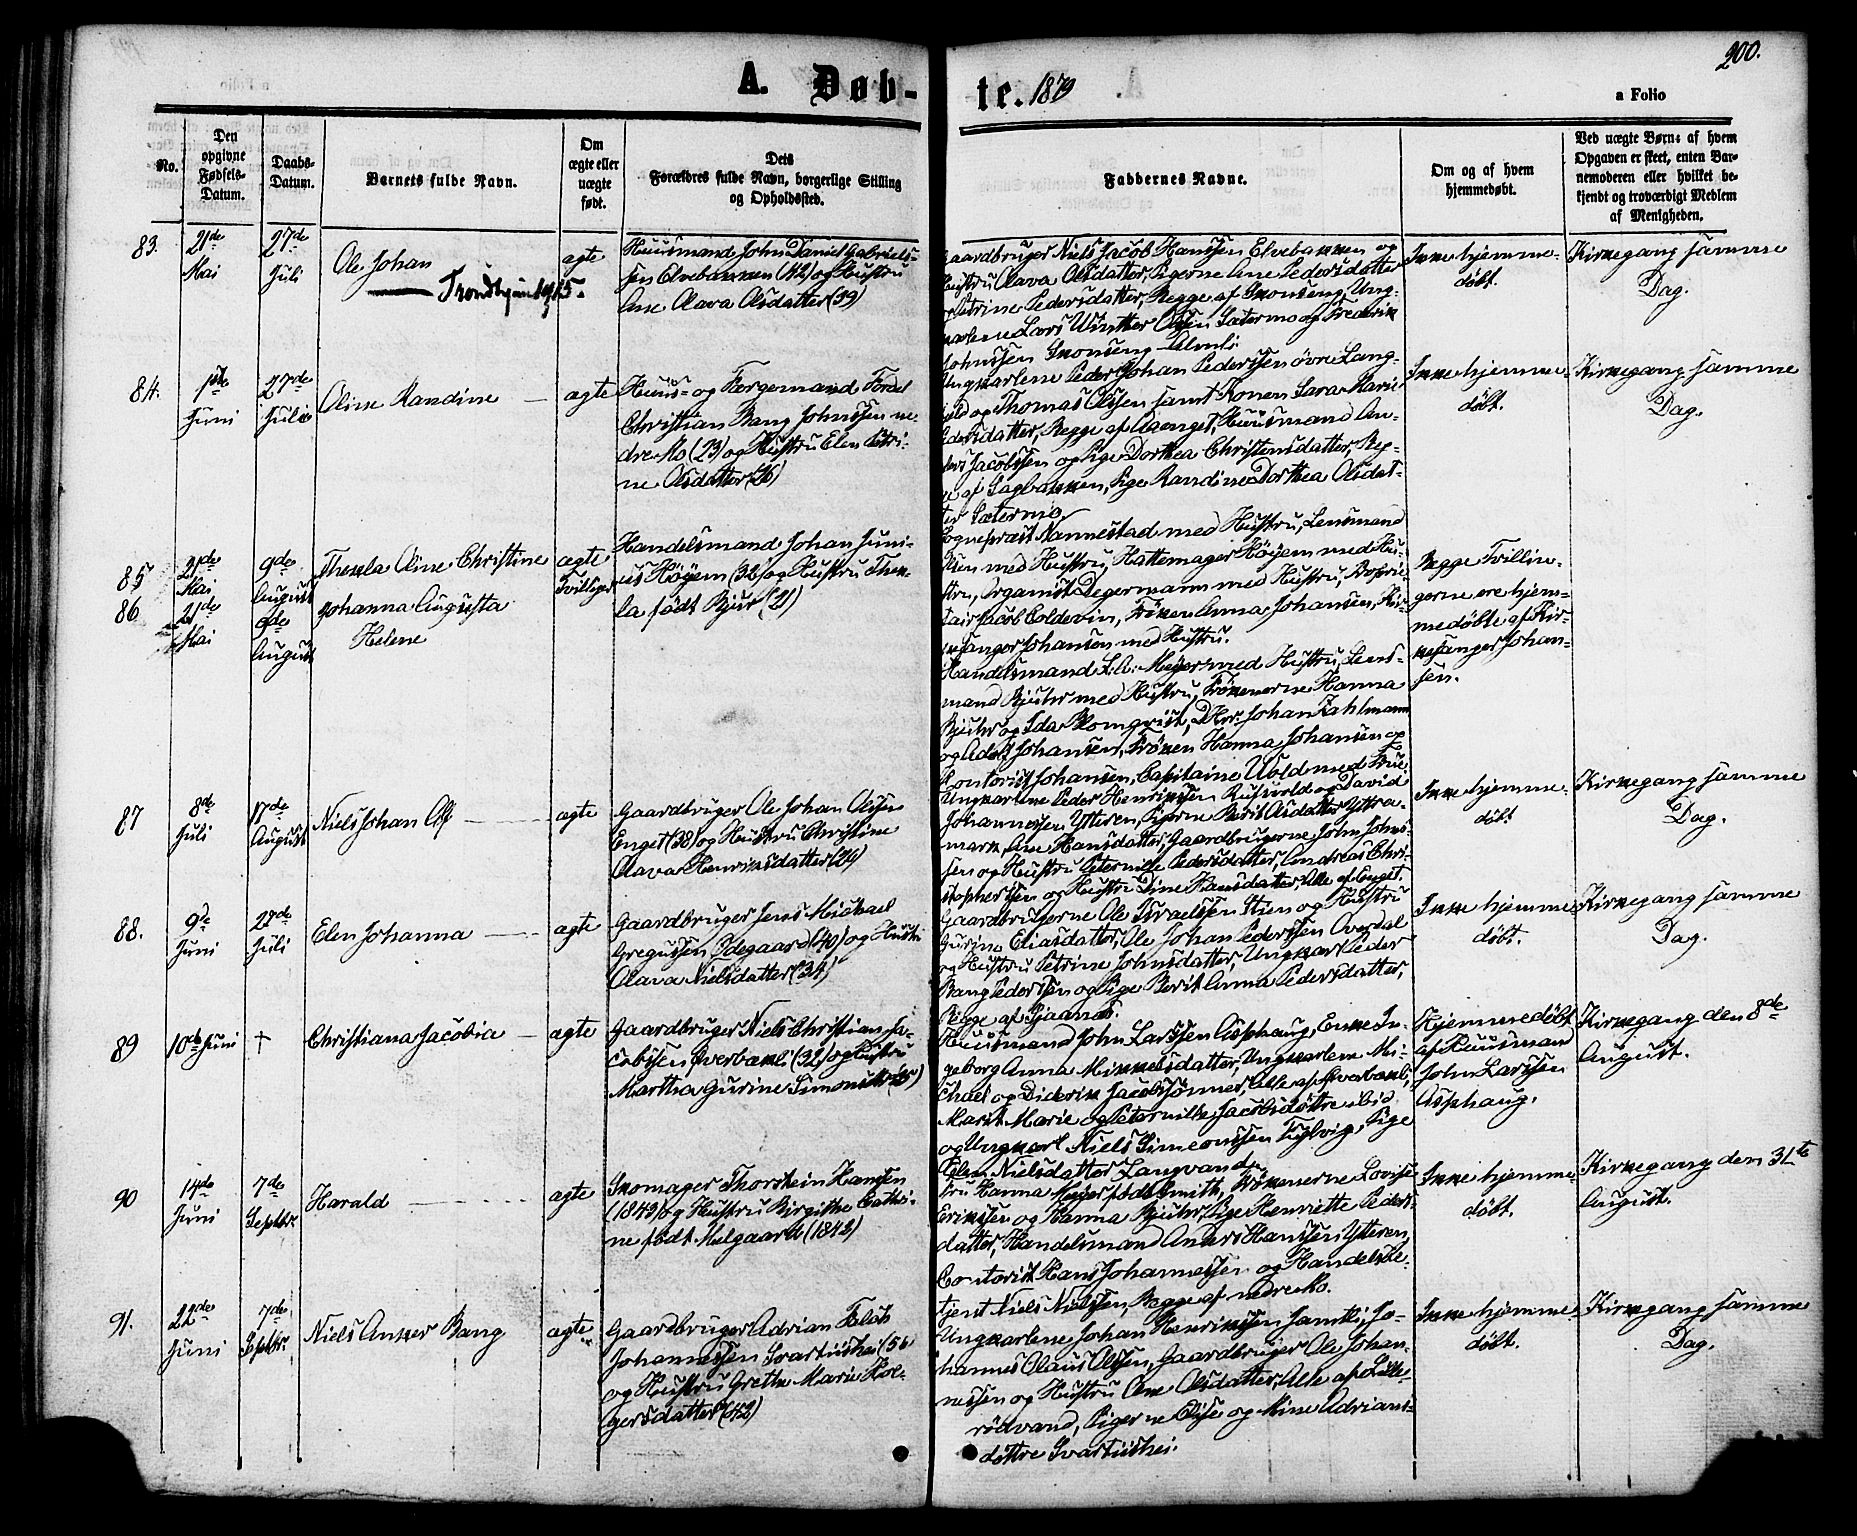 200.
A. Døb-
te. 1879
a Folio
No.
Den opgivne Fødsels-Datum.
Daabs-Datum.
Barnets fulde Navn.
Om ægte eller uægte født.
Dets Forældres fulde Navn, borgerlige Stilling og Opholdssted.
Faddernes Navne.
Om og af hvem hjemmedøbt.
Ved uægte Børn: af hvem Opgaven er skeet, enten Barnemoderen eller hvilket bekjendt og troværdigt Medlem af Menigheden.
83.
21de Mai
27de Juli
Ole Johan
ægte
Huusmand John Daniel Gabriels-
sen Elvebakken (42) og Hustru
Ane Olava Olsdatter (39)
Gaardbruger Niels Jacob Hanssen Elvebakken og
Hustru Olava Olsdatter, Pigerne Ane Pedersdatter
og Petrine Pedersdatter, Begge af Skonseng, Ung-
karlene Lars Winther Olsen Sætermo og Frederik
Johnssen Skonseng-Almli
Ikke hjemme-
døbt.
Kirkegang samme
Dag.
84.
1ste Juni
27de Juli
Oline Randine
ægte
Huus- og Færgemand
Christian Bang Johnssen ne-
dre Mo (23) og Hustru Elen Petri-
ne Olsdatter (26)
Ungkarlene Peder Johan Pederssen øvre Lang-
og Thomas Olssen samt Konen Sara Marie
Pedersdatter, Begge af Aaenget, Huusmand An-
ders Jacobssen og Pige Dorthea Christensdatter, Beg-
ge af Sagbakken, Pige Randine Dorthea Olsdat-
ter Sætermo
Ikke hjemme-
døbt.
Kirkegang samme
Dag.
85
21de Mai
9de August
Thekla Oline Christine
ægte
Tvillinger
Handelsmand Johan Juni-
us Høyem (32) og Hustru Thek-
la født Bjur (21)
Sognepræst Nannestad med Hustru, Lensmand
med Hustru, Hattemager Høyem med Hu-
stru, Organist Degermann med Hustru, Proprie-
tair Jacob Coldevin, Frøken Anna Johansen, Kir-
kesanger Johansen med Hustru.
Begge Tvillin-
gerne ere hjem-
medøbte af Kir-
kesanger Johan-
sen.
86
21de Mai
9de August
Johanna Augusta
Helene
Handelsmand L.A. Meyer med Hustru, Lens-
mand Bjuhr med Hustru, Frøkenerne Hanna
Bjuhr og Ida Blomqvist, DHrr. Johan Zahlmann
og Adolf Johansen, Frøken Hanna Johansen og
Kontorist Johansen, Capitaine Vold med Frue
87
8de Juli
17de August
Niels Johan Olf
ægte
Gaardbruger Ole Johan Olssen
Enget (38) og Hustru Christine
Olava Henriksdatter (24)
Ungkarlene Peder Henrikssen Rufsvold og David
Johannessen Ytteren, Pigerne Berit Olsdatter Yttra-
mark, Ane Hansdatter, Gaardbrugerne John Johns-
sen og Hustru Peternille Pedersdatter, Andreas Chri-
stophersen og Hustru Dine Hansdatter, Alle af Enget.
Ikke hjemme-
døbt
Kirkegang samme
Dag.
88.
9de Juni
28de Juli
Elen Johanna
ægte
Gaardbruger Jens Michael
Gregussen Ildegaard (40) og Hustru
Olava Nielsdatter (34)
Gaardbrugerne Ole Israelssen Stien og Hustru
Gurine Eliasdatter, Ole Johan Pederssen Overdal
og Hustru Petrine Johnsdatter, Ungkarl Peder
Bang Pederssen og Pige Berit Anna Pedersdatter,
Begge af Bjaanæs.
Ikke hjemme-
døbt.
Kirkegang samme
Dag.
89
10de Juni
†
Christiana Jacobia
ægte
Gaardbruger Niels Christian Ja-
cobssen Hverbakk (32) og Hustru
Martha Gurine Simonsdtr
Huusmand John Larssen Asphaug, Enke In-
geborg Anna Mikkelsdatter, Ungkarlene Mi-
chael og Diderik Jacobssønner, Alle af Hverbakk,
Marit Marie og Peternille Jacobsdøttre ibid
og Ungkarl Niels Simeonssen Fuglvig, Pige
Elen Nielsdatter Langvand
Hjemmedøbt
af Huusmand
John Larssen
Asphaug.
Kirkegang den 8de
August.
90
14de Juni
7de Septbr.
Harald
ægte
Skomager Thorstein Hansen
(1849) og Hustru Birgithe Cathri-
ne født Melgaard (1842)
Fru Hanna Meyer født Smith, Frøkenerne Lovise
Erikssen og Hanna Bjuhr, Pige Henriette Peders-
datter, Handelsmand Anders Hanssen Ytteren,
Contorist Hans Johannessen og Handelsbe-
tjent Niels Nielssen, Begge af nedre Mo.
Ikke hjemme-
døbt.
Kirkegang den 31te
August.
91.
22de Juni
7de Septbr.
Niels Anker Bang
ægte
Gaardbruger Adrian Falch
Johannessen Svartishei (56
og Hustru Grethe Marie Hol-
gersdatter (42)
Ungkarlene Johan Henrikssen Jamtli, Jo-
hannes Olaus Olssen, Gaardbruger Ole Johan-
nessen og Hustru Ane Olsdatter, Alle af Lille-
rødvand, Pigerne Elise og Mine Adrians-
døttre Svartishei.
Ikke hjemme-
døbt.
Kirkegang samme
Dag.